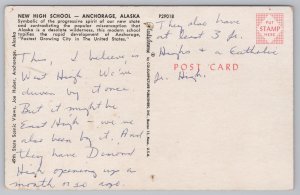 NEW HIGH SCHOOL — ANCHORAGE, ALASKA
P29018
Symbolic of the progressive spirit of our new state
and contradicting the popular misconception that
Alaska is a desolate wilderness, this modern school
typifies the rapid development of Anchorage,
"Fastest Growing City in The United States."
This, I believe is
West High. We've
driven by it once.
But it might be
East High - we've
also been by it. And
they have Dimond
High opening up a
month or so ago.
They also have
at least 3 Jr.
Highs & a Catholic
Jr. High.
PLACE
STAMP
HERE
POST CARD
49th State Scenic Views, Joe Huber, Anchorage, Alaska